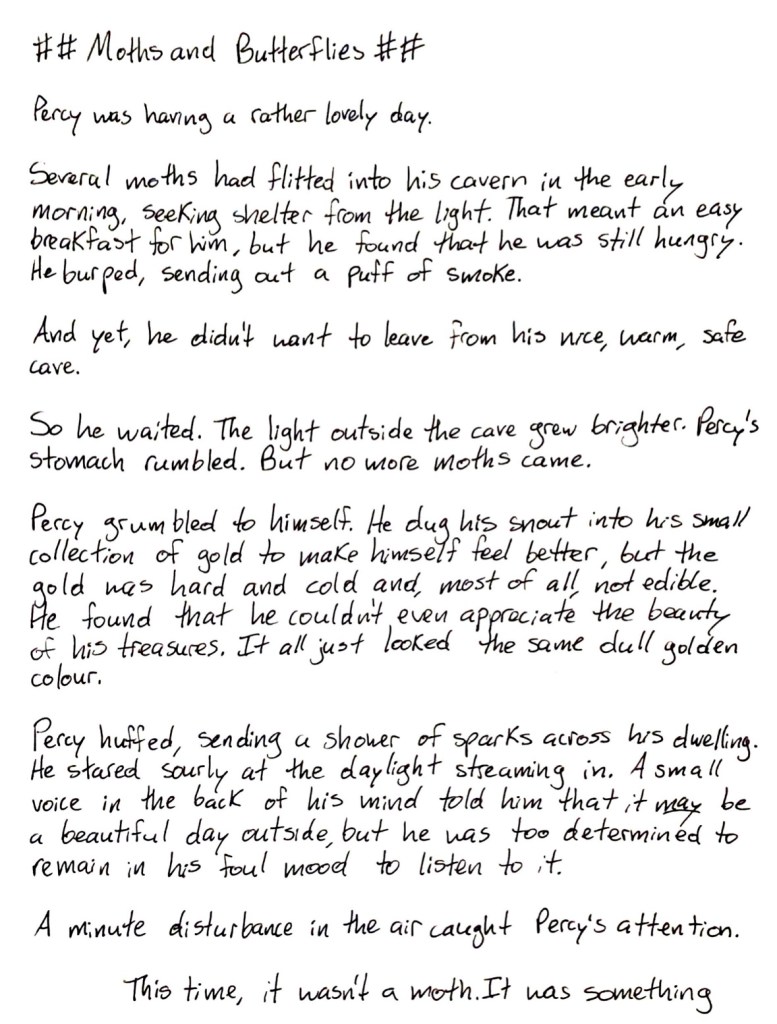 ## Moths and Butterflies ##
Percy was having a rather lovely day.
Several moths had flitted into his cavern in the early
morning, seeking shelter from the light. That meant an easy
breakfast for him, but he found that he was still hungry.
He burped, sending out a puff of smoke.
And yet, he didn't want to leave from his nice, warm, safe
cave.
So he waited. The light outside the cave grew brighter. Percy's
stomach rumbled. But no more moths came.
Percy grumbled to himself. He dug his snout into his small
collection of gold to make himself feel better, but the
gold was hard and cold and, most of all, not edible.
He found that he couldn't even appreciate the beauty
of his treasures. It all just looked the same dull golden
colour.
Percy huffed, sending a shower of sparks across his dwelling.
He stared sourly at the daylight streaming in. A small
voice in the back of his mind told him that it may be
a beautiful day outside, but he was too determined to
remain in his foul mood to listen to it.
A minute disturbance in the air caught Percy's attention.
This time, it wasn't a moth. It was something